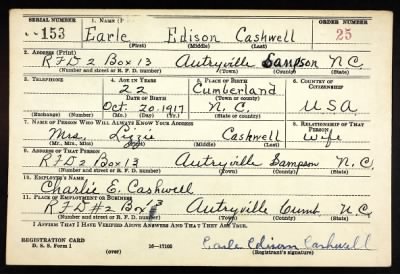 SERIAL NUMBER 1. NAME (P ORDER NUMBER
153 Earle Edison Cashwell 25
(First) (Middle) (Last)
2. ADDRESS (Print)
RFD 2 Box 13 Autryville Sampson N.C.
(Number and street or R. F. D. number) (Town) (County) (State)
3. TELEPHONE 4. AGE IN YEARS 5. PLACE OF BIRTH 6. COUNTRY OF CITIZENSHIP
22 Cumberland
DATE OF BIRTH (Town or county)
Oct. 20. 1917 N.C. USA
(Exchange) (Number) (Mo.) (Day) (Yr.) (State or country)
7. NAME OF PERSON WHO WILL ALWAYS KNOW YOUR ADDRESS 8. RELATIONSHIP OF THAT PERSON
Mrs. Lizzie Cashwell Wife
(Mr., Mrs., Miss) (First) (Middle) (Last)
9. ADDRESS OF THAT PERSON
RFD 2 Box 13 Autryville Sampson N.C.
(Number and street or R. F. D. number) (Town) (County) (State)
10. EMPLOYER'S NAME
Charlie E. Cashwell
11. PLACE OF EMPLOYMENT OR BUSINESS
RFD #2 Box 13 Autryville Cumb. N.C.
(Number and street or R. F. D. number) (Town) (County) (State)
I AFFIRM THAT I HAVE VERIFIED ABOVE ANSWERS AND THAT THEY ARE TRUE.
REGISTRATION CARD Earle Edison Cashwell
D. S. S. Form 1 (over) 16—17105 (Registrant's signature)